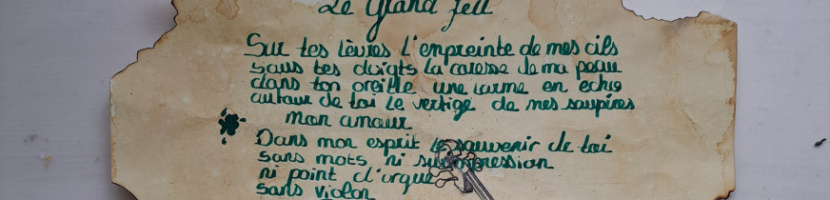 Le Grand feu
Sur tes lèvres l'empreinte de mes cils
sous tes doigts la caresse de ma peau
dans ton oreille une larme en écho
autour de toi le vertige de mes soupirs
mon amour
Dans mon esprit le souvenir de toi
sans mots, ni
ni point d'orgue
sans violon